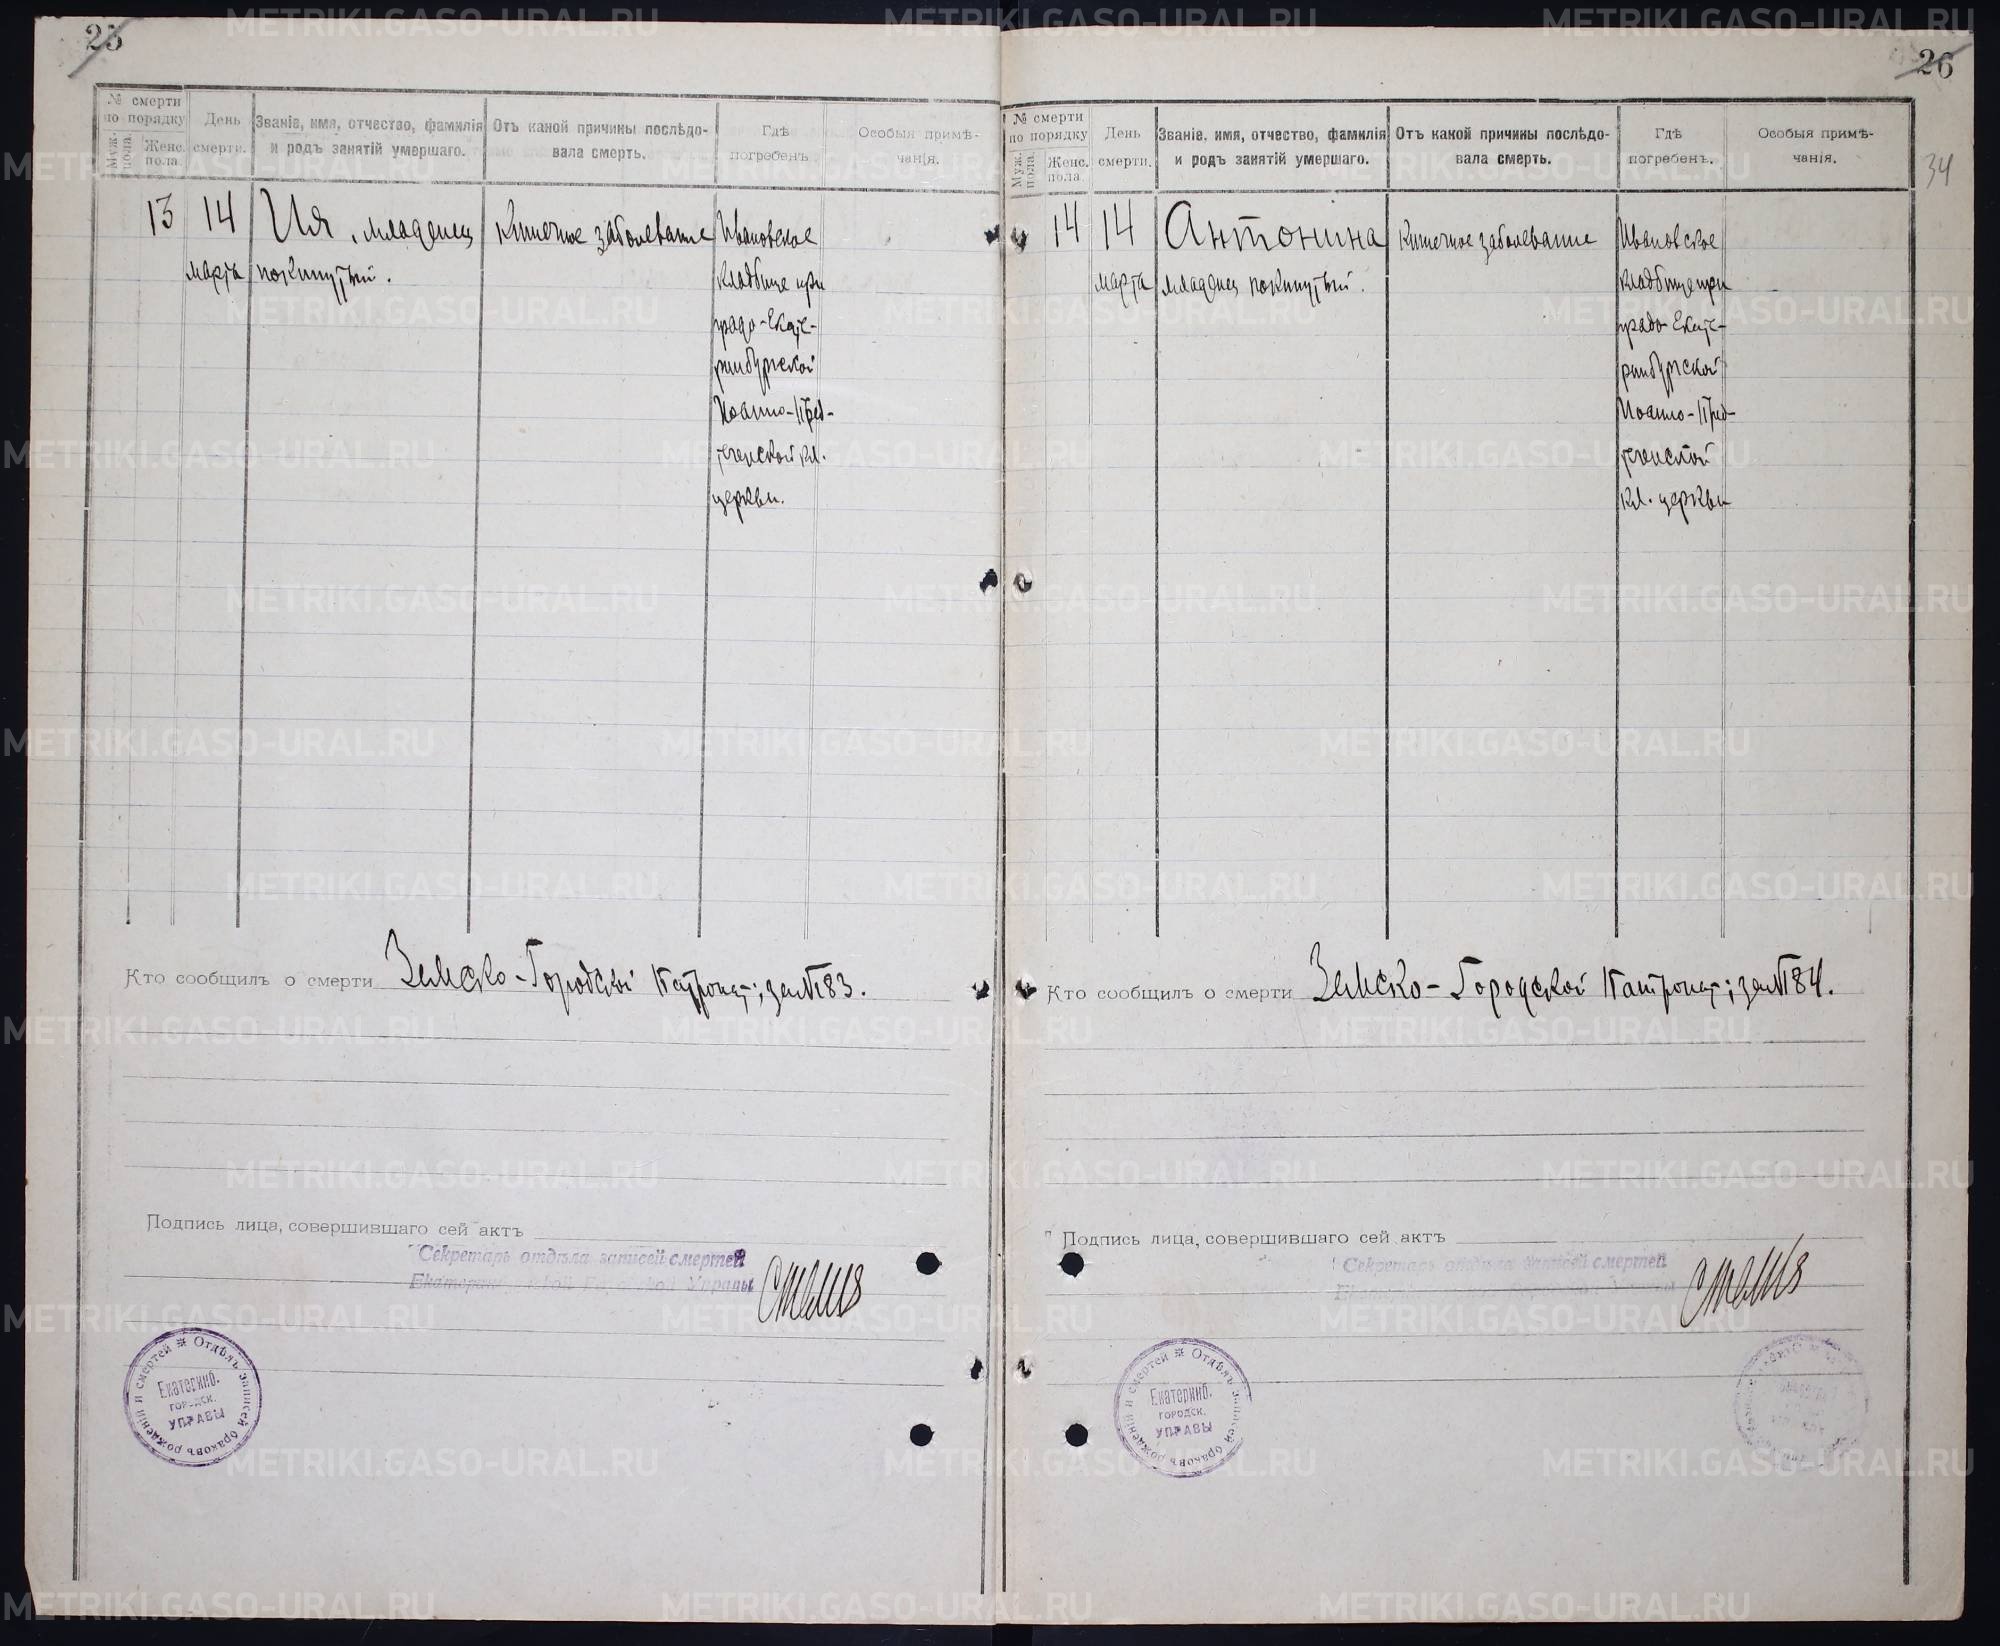 25
№ смерти
по порядку
Муж.
пола.
Женс.
пола.
День
смерти.
Званіе, имя, отчество, фамилія
и родъ занятій умершаго.
Отъ какой причины послѣдо-
вала смерть.
Гдѣ
погребенъ.
Особыя примѣ-
чанія.
13
14
марта
Ия, младенец
покинутый.
Кишечное заболевание
Ивановское
кладбище при
градо-Екате-
ринбургской
Иоанно-Пред-
теченской кл.
церкви.
Кто сообщилъ о смерти Земско-Городской Патронат; за №183.
Подпись лица, совершившаго сей актъ
Секретарь отдѣла записей смертей
Управы
Отдѣлъ записей браковъ рожденій и смертей
Екатеринб.
городск.
управы
26
34
№ смерти
по порядку
Муж.
пола.
Женс.
пола.
День
смерти.
Званіе, имя, отчество, фамилія
и родъ занятій умершаго.
Отъ какой причины послѣдо-
вала смерть.
Гдѣ
погребенъ.
Особыя примѣ-
чанія.
14
14
марта
Антонина
младенец покинутый.
Кишечное заболевание
Ивановское
кладбище при
градо-Екате-
ринбургской
Иоанно-Пред-
теченской
кл. церкви
Кто сообщилъ о смерти Земско-Городской Патронат; за №184.
Подпись лица, совершившаго сей актъ
Секретарь отдѣла записей смертей
Отдѣлъ записей браковъ рожденій и смертей
Екатеринб.
городск.
управы
METRIKI.GASO-URAL.RU